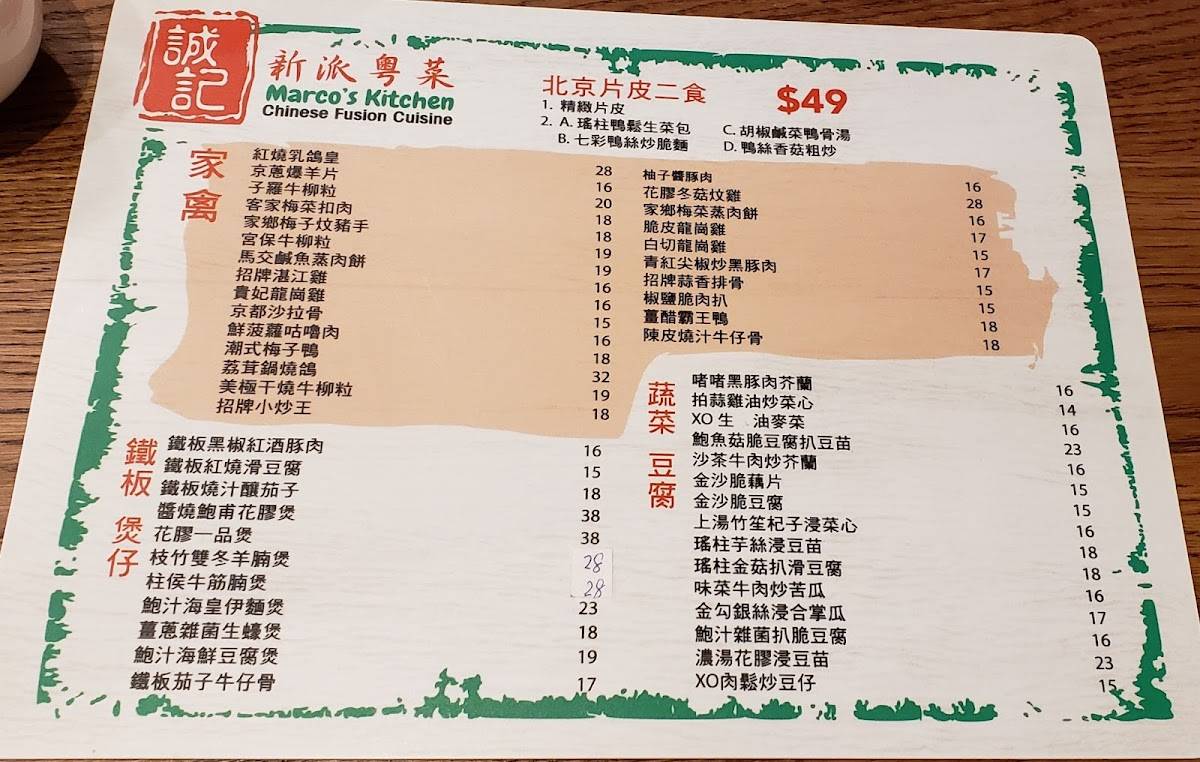 誠記
新派粵菜
Marco's Kitchen
Chinese Fusion Cuisine
北京片皮二食 $49
1. 精緻片皮
2. A. 瑤柱鴨鬆生菜包
B. 七彩鴨絲炒脆麵
C. 胡椒鹹菜鴨骨湯
D. 鴨絲香菇粗炒
家禽
紅燒乳鴿皇 28
京蔥爆羊片 16
子羅牛柳粒 20
客家梅菜扣肉 18
家鄉梅子炆豬手 18
宮保牛柳粒 19
馬交鹹魚蒸肉餅 19
招牌湛江雞 16
貴妃龍崗雞 16
京都沙拉骨 15
鮮菠蘿咕嚕肉 16
潮式梅子鴨 18
荔茸鍋燒鴿 32
美極干燒牛柳粒 19
招牌小炒王 18
柚子醬豚肉 16
花膠冬菇炆雞 28
家鄉梅菜蒸肉餅 16
脆皮龍崗雞 17
白切龍崗雞 15
青紅尖椒炒黑豚肉 17
招牌蒜香排骨 15
椒鹽脆肉扒 15
薑醋霸王鴨 18
陳皮燒汁牛仔骨 18
鐵板 煲仔
鐵板黑椒紅酒豚肉 16
鐵板紅燒滑豆腐 15
鐵板燒汁釀茄子 18
醬燒鮑甫花膠煲 38
花膠一品煲 38
枝竹雙冬羊腩煲 28
柱侯牛筋腩煲 28
鮑汁海皇伊麵煲 23
薑蔥雜菌生蠔煲 18
鮑汁海鮮豆腐煲 19
鐵板茄子牛仔骨 17
蔬菜 豆腐
啫啫黑豚肉芥蘭 16
拍蒜雞油炒菜心 14
XO 生 油麥菜 16
鮑魚菇脆豆腐扒豆苗 23
沙茶牛肉炒芥蘭 16
金沙脆藕片 15
金沙脆豆腐 15
上湯竹笙杞子浸菜心 16
瑤柱芋絲浸豆苗 18
瑤柱金菇扒滑豆腐 18
味菜牛肉炒苦瓜 16
金勾銀絲浸合掌瓜 17
鮑汁雜菌扒脆豆腐 16
濃湯花膠浸豆苗 23
XO肉鬆炒豆仔 15